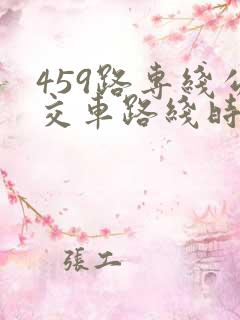 459路専綫公
交車路綫時
張工